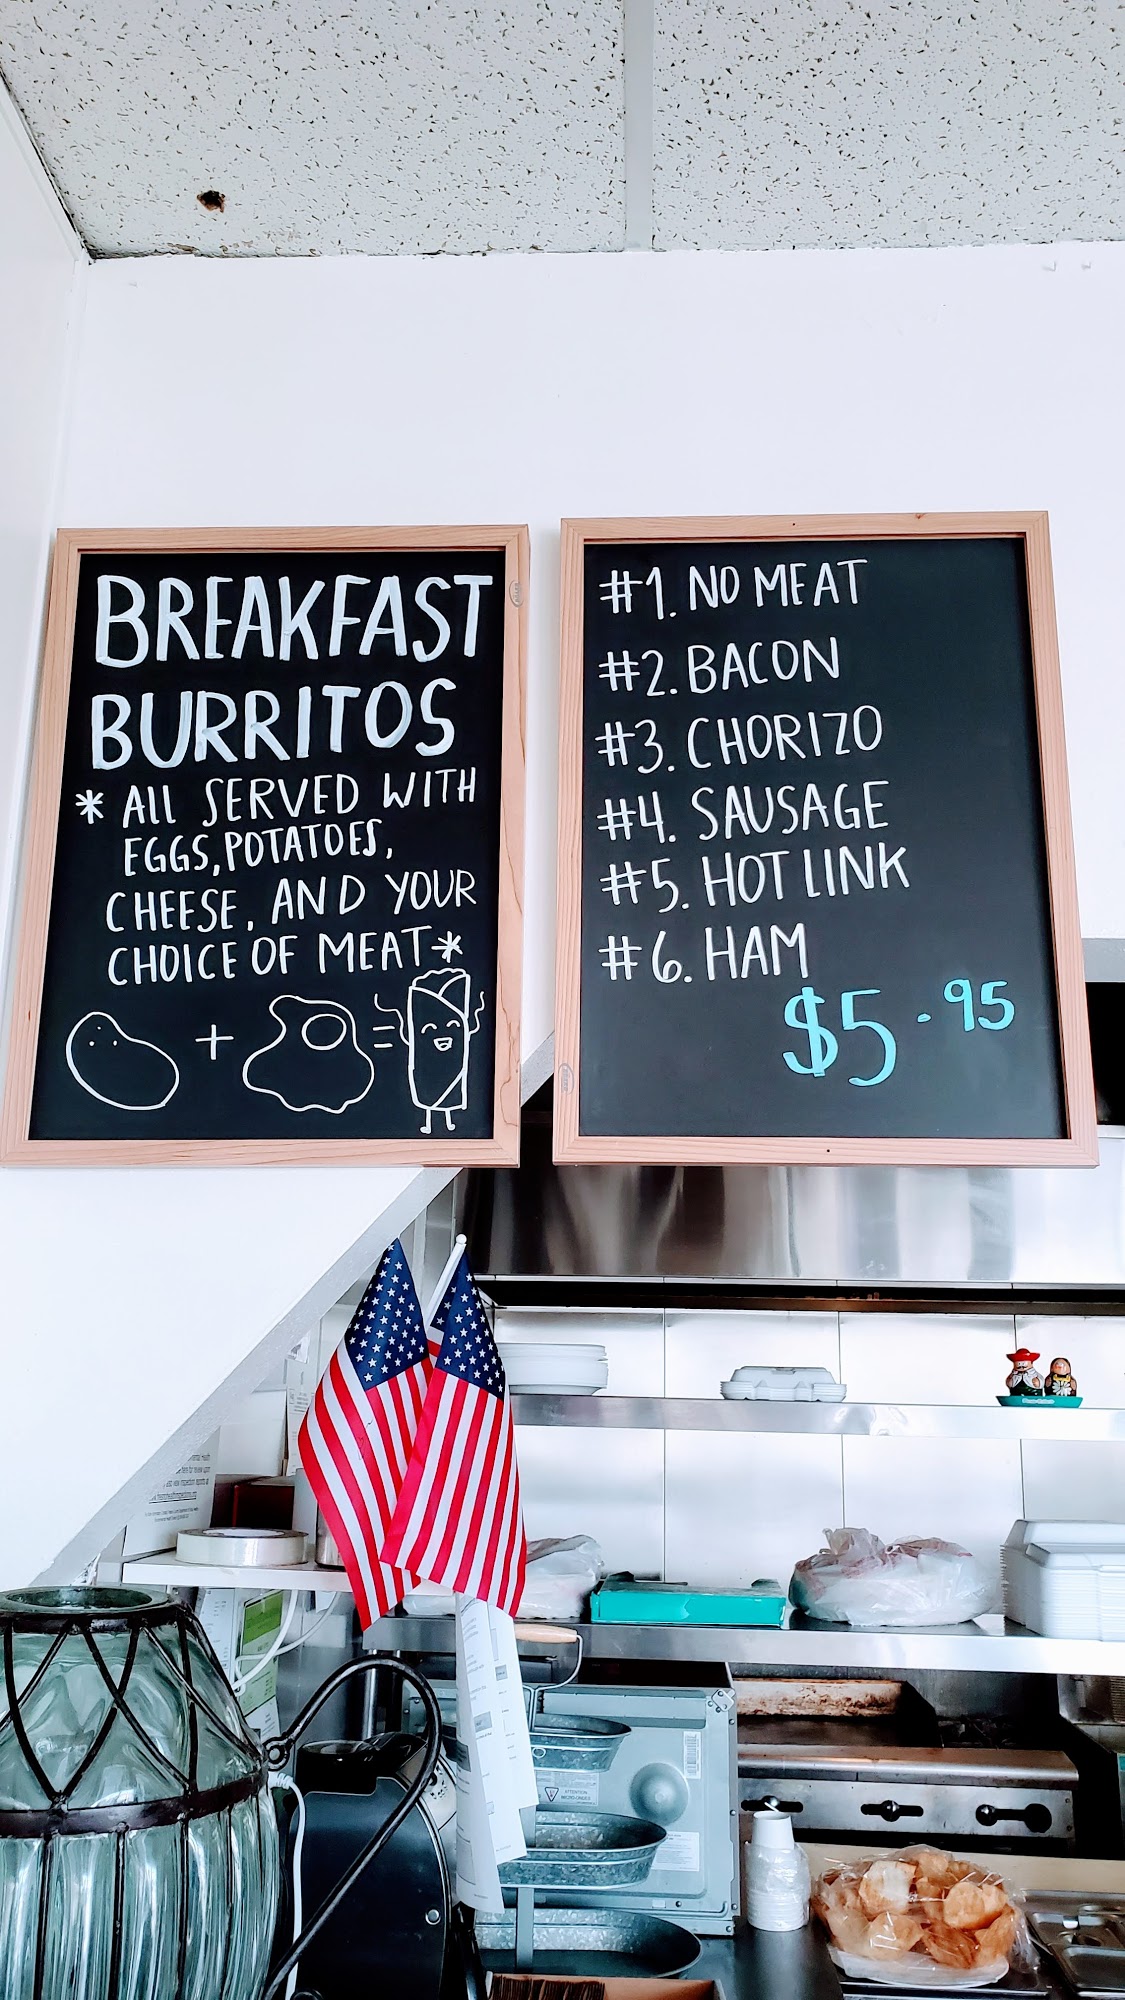 BREAKFAST
BURRITOS
* ALL SERVED WITH
EGGS, POTATOES,
CHEESE, AND YOUR
CHOICE OF MEAT *
+ =
#1. NO MEAT
#2. BACON
#3. CHORIZO
#4. SAUSAGE
#5. HOT LINK
#6. HAM
$5.95
ATTENTION